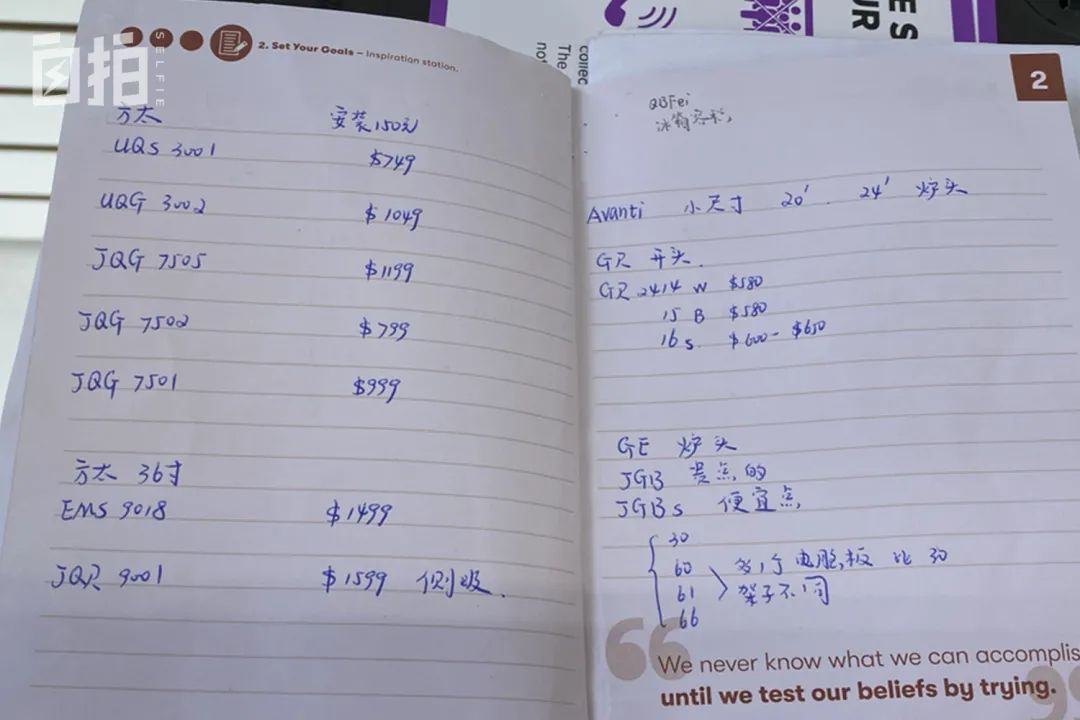 自拍
SELFIE
2. Set Your Goals – Inspiration station.
方太 安装150元
UQS 3001 $749
UQG 3002 $1049
JQG 7505 $1199
JQG 7502 $799
JQG 7501 $999
方太 36寸
EMS 9018 $1499
JQR 9001 $1599 侧吸.
collec
The
not
ES
UR
2
QBFei
冰箱
Avanti 小尺寸 20' 24' 炉头
GR 开头.
GR 2414 W $580
15 B $580
16 S. $600- $650
GE 炉头
JGB 是点的
JGBS 便宜点
30
60 多1个电脑板 比 30
61 架子不同
66
We never know what we can accomplis
until we test our beliefs by trying.